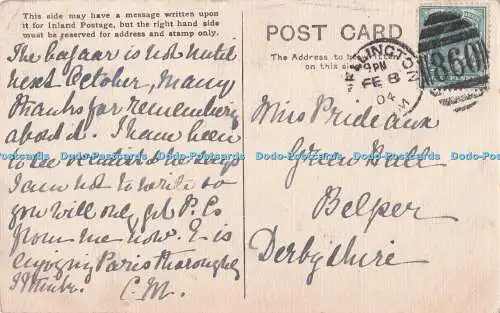 This side may have a message written upon
it for Inland Postage, but the right hand side
must be reserved for address and stamp only.
The bazaar is not until
next October, Many
thanks for remembering
about it. I have been
to see
I am not to write so
you will only get P. Cs
from me now. E is
enjoying Paris thoroughly
I think.
C. M.
POST CARD
The Address to be
on this side
WELLINGTON
3 PM
FE 8
04
860
Miss Prideaux
Green Hall
Belper
Derbyshire
Postcards Postcards Postcards Postcards Postcards Postcards